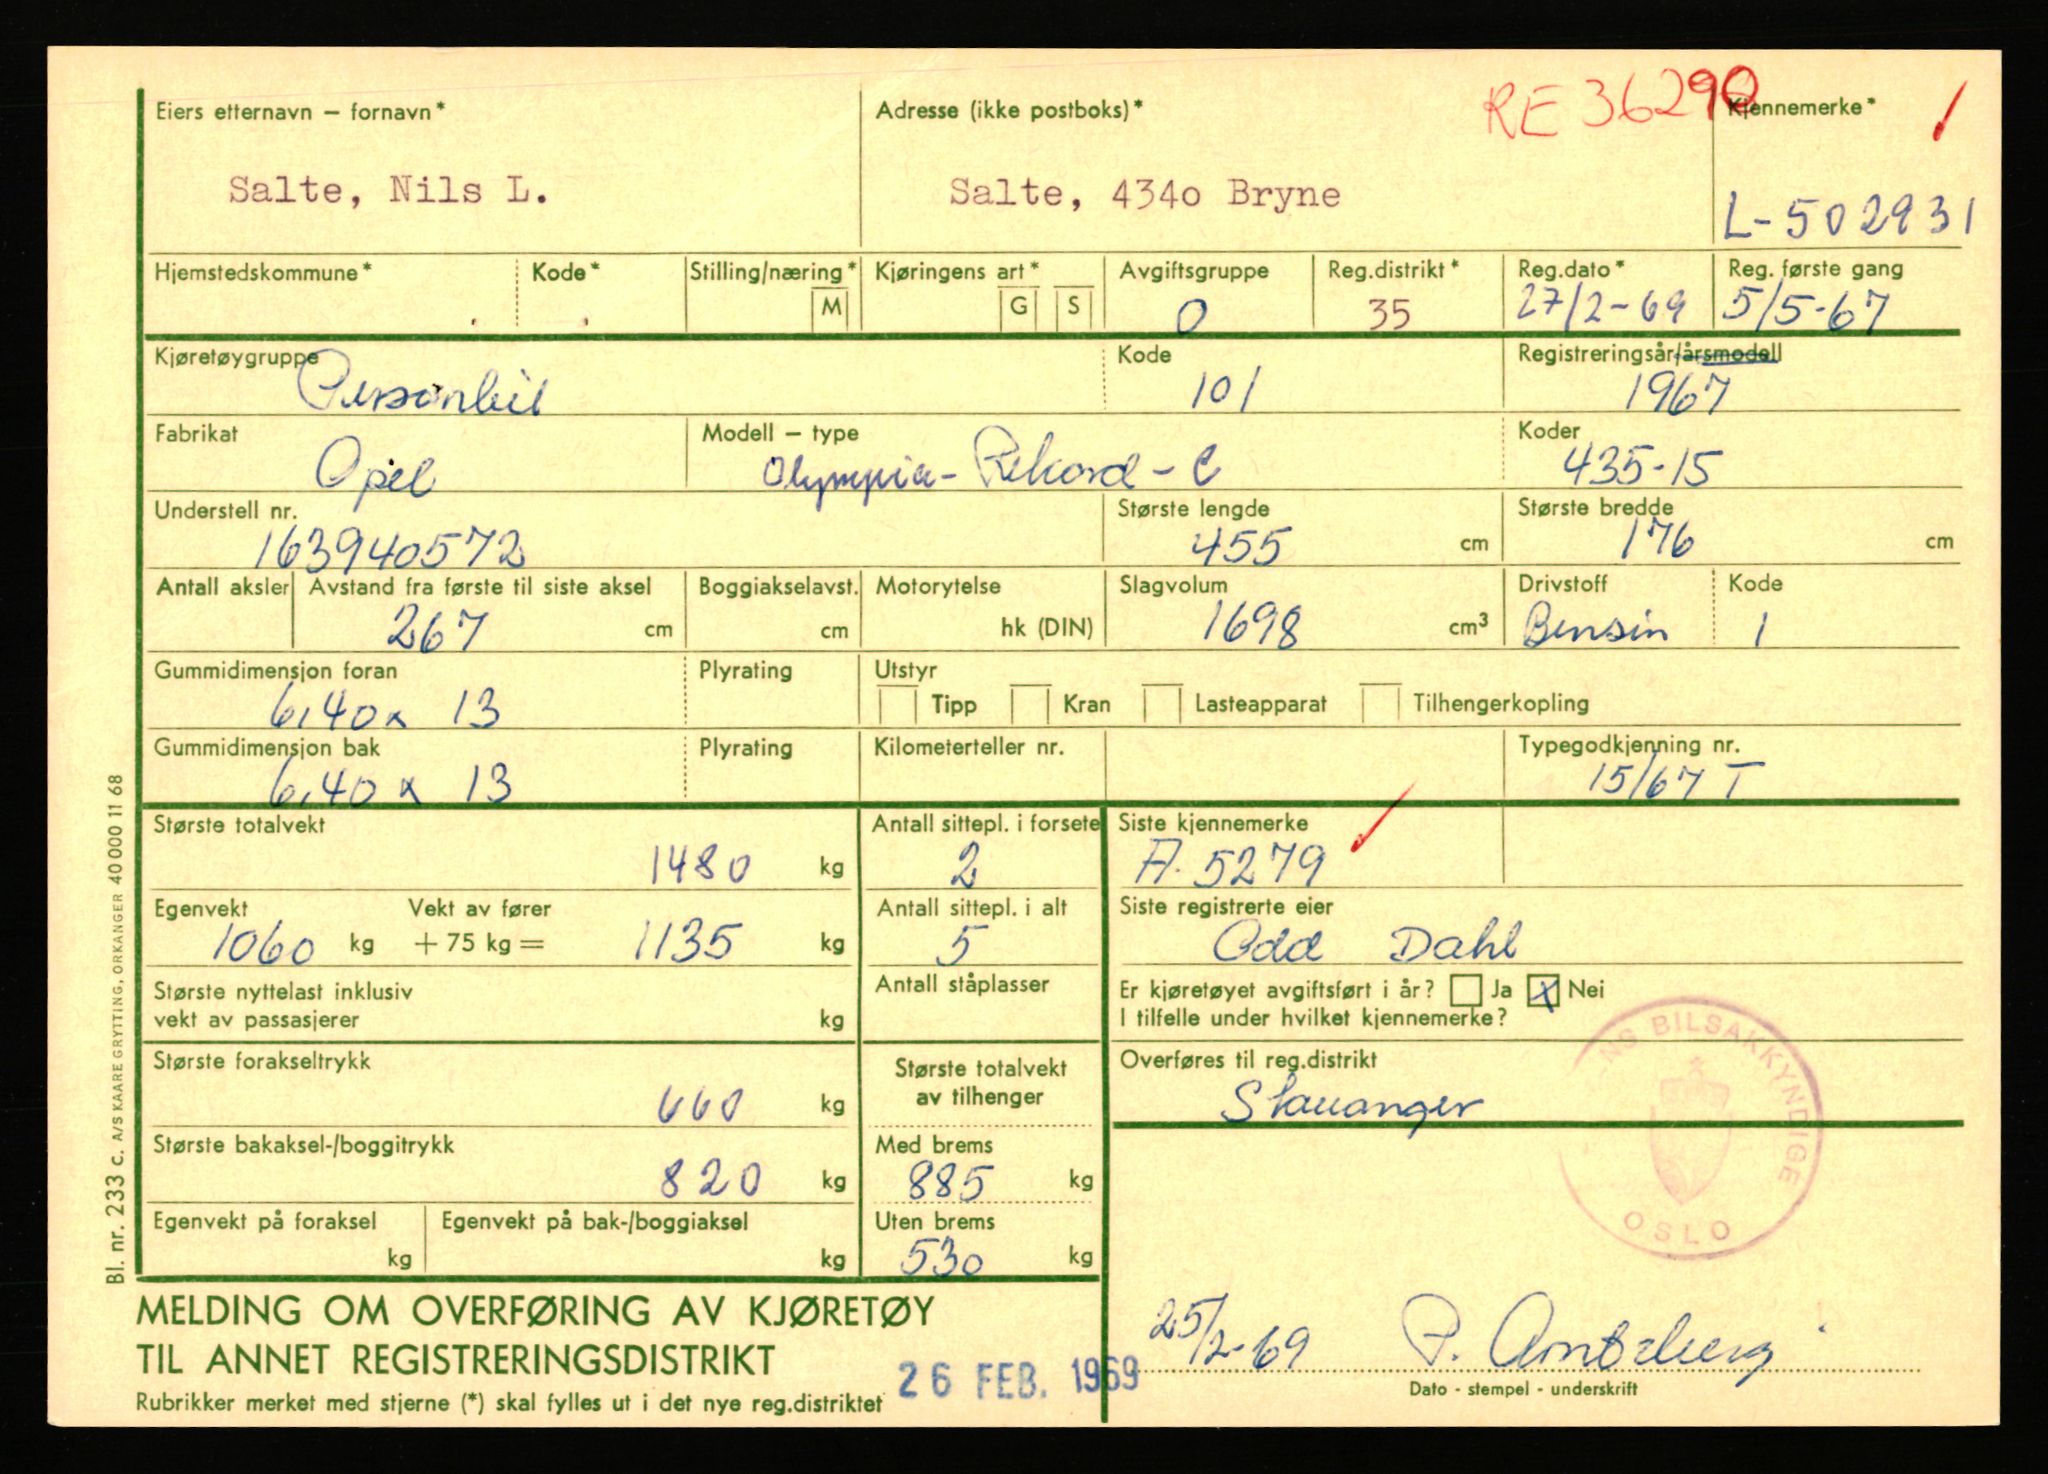 RE 36290
Eiers etternavn – fornavn* Adresse (ikke postboks)* Kjennemerke*
Salte, Nils L. Salte, 4340 Bryne L-502931
Hjemstedskommune* Kode* Stilling/næring* Kjøringens art* Avgiftsgruppe Reg.distrikt* Reg.dato* Reg. første gang
M G S 0 35 27/2-69 5/5-67
Kjøretøygruppe Kode Registreringsår/årsmodell
Personbil 101 1967
Fabrikat Modell – type Koder
Opel Olympia- Rekord - C 435-15
Understell nr. Største lengde Største bredde
163940572 455 cm 176 cm
Antall aksler Avstand fra første til siste aksel Boggiakselavst. Motorytelse Slagvolum Drivstoff Kode
267 cm cm hk (DIN) 1698 cm³ Bensin 1
Gummidimensjon foran Plyrating Utstyr
6,40 x 13 Tipp Kran Lasteapparat Tilhengerkopling
Gummidimensjon bak Plyrating Kilometerteller nr. Typegodkjenning nr.
6,40 x 13 15/67 T
Største totalvekt Antall sittepl. i forsete Siste kjennemerke
1480 kg 2 A-5279
Egenvekt Vekt av fører Antall sittepl. i alt Siste registrerte eier
1060 kg + 75 kg = 1135 kg 5 Odd Dahl
Største nyttelast inklusiv Antall ståplasser Er kjøretøyet avgiftsført i år? Ja x Nei
vekt av passasjerer kg I tilfelle under hvilket kjennemerke?
Største forakseltrykk Største totalvekt Overføres til reg.distrikt
660 kg av tilhenger Stavanger
Største bakaksel-/boggitrykk Med brems
820 kg 885 kg
Egenvekt på foraksel Egenvekt på bak-/boggiaksel Uten brems
kg kg 530 kg
NS BILSAKKYNDIGE
OSLO
MELDING OM OVERFØRING AV KJØRETØY
TIL ANNET REGISTRERINGSDISTRIKT
25/2-69 P.
26 FEB. 1969
Dato - stempel - underskrift
Rubrikker merket med stjerne (*) skal fylles ut i det nye reg.distriktet
Bl. nr. 233 c. A/S KAARE GRYTTING, ORKANGER 40 000 11 68